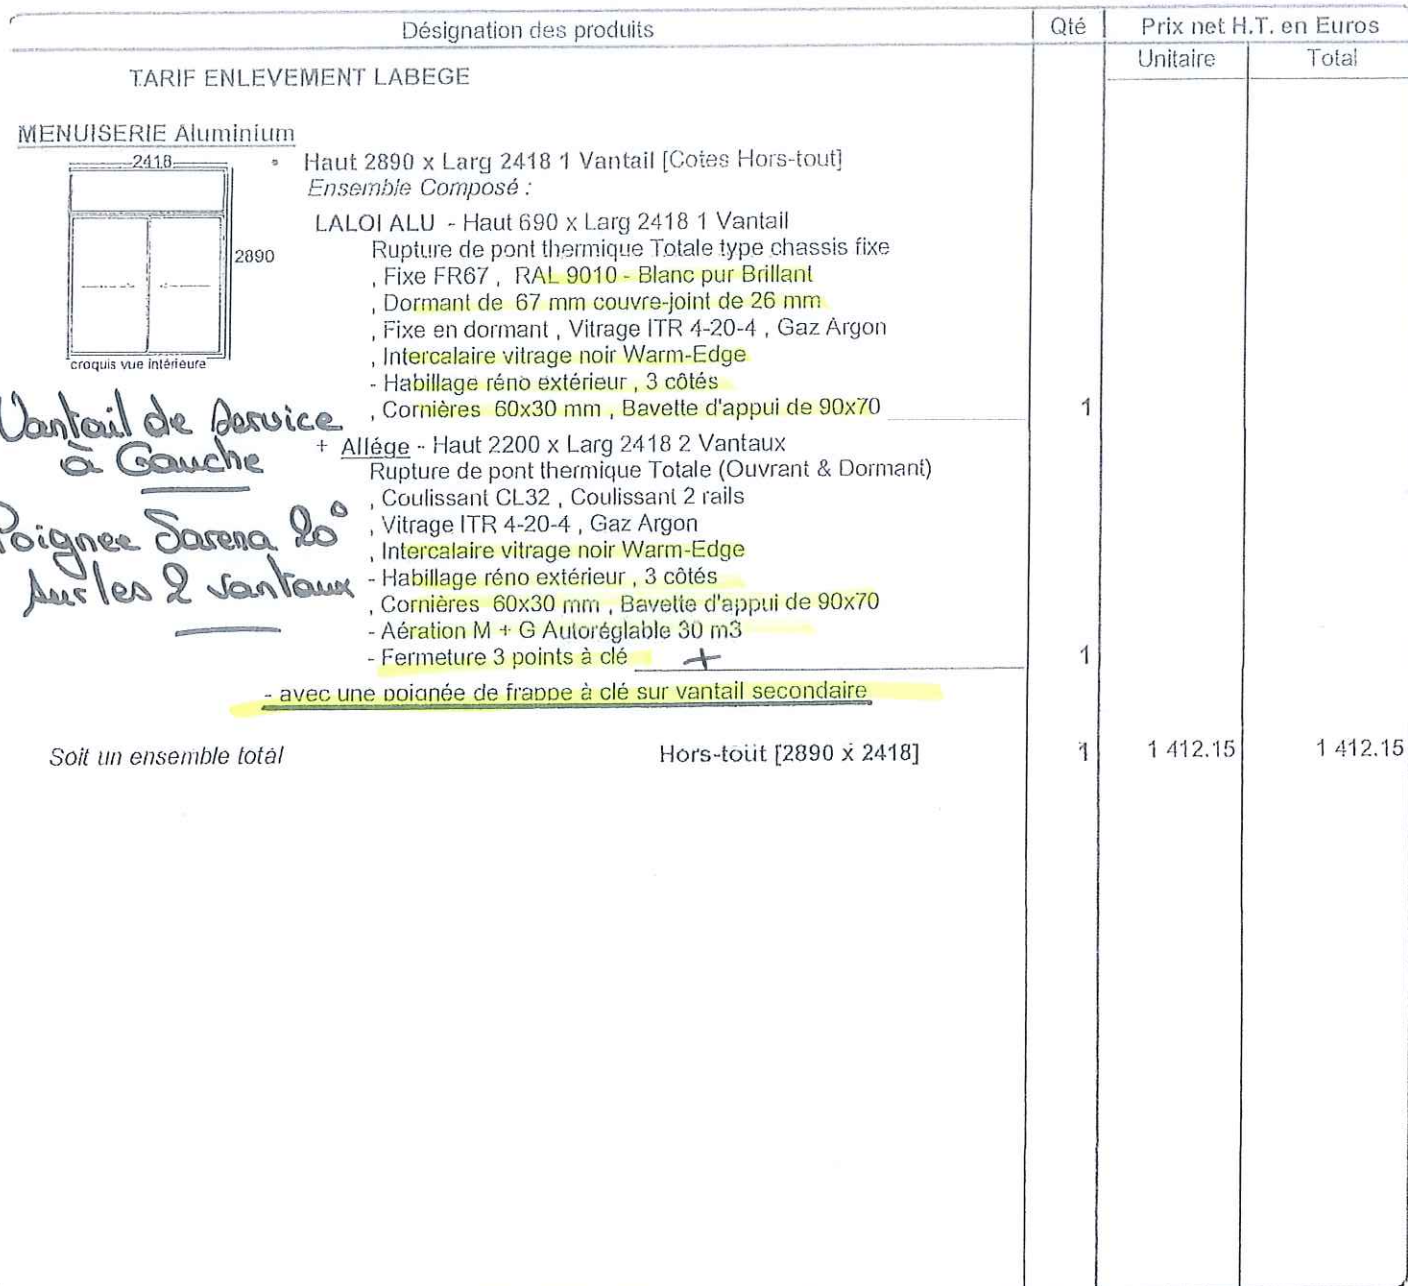 Désignation des produits
Qté
Prix net H.T. en Euros
Unitaire
Total
TARIF ENLEVEMENT LABEGE
MENUISERIE Aluminium
2418
2890
croquis vue intérieure
° Haut 2890 x Larg 2418 1 Vantail [Cotes Hors-tout]
Ensemble Composé :
LALOI ALU - Haut 690 x Larg 2418 1 Vantail
Rupture de pont thermique Totale type chassis fixe
, Fixe FR67 , RAL 9010 - Blanc pur Brillant
, Dormant de 67 mm couvre-joint de 26 mm
, Fixe en dormant , Vitrage ITR 4-20-4 , Gaz Argon
, Intercalaire vitrage noir Warm-Edge
- Habillage réno extérieur , 3 côtés
, Cornières 60x30 mm , Bavette d'appui de 90x70 1
Vantail de Service
à Gauche
+ Allége - Haut 2200 x Larg 2418 2 Vantaux
Rupture de pont thermique Totale (Ouvrant & Dormant)
, Coulissant CL32 , Coulissant 2 rails
, Vitrage ITR 4-20-4 , Gaz Argon
, Intercalaire vitrage noir Warm-Edge
- Habillage réno extérieur , 3 côtés
, Cornières 60x30 mm , Bavette d'appui de 90x70
- Aération M + G Autoréglable 30 m3
- Fermeture 3 points à clé + 1
Poignee Sarena 20°
sur les 2 vantaux
- avec une poignée de frappe à clé sur vantail secondaire
Soit un ensemble total Hors-tout [2890 x 2418] 1 1 412.15 1 412.15